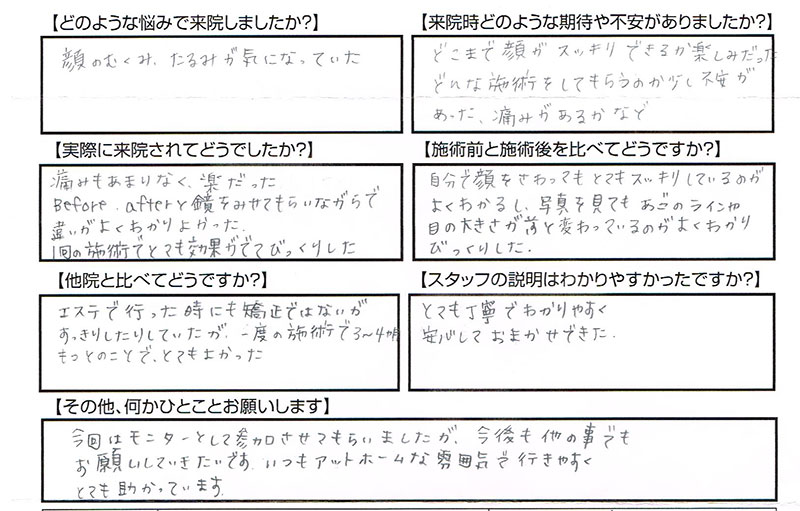 【どのような悩みで来院しましたか?】
顔のむくみ、たるみが気になっていた
【来院時どのような期待や不安がありましたか?】
どこまで顔がスッキリできるか楽しみだった
どんな施術をしてもらうのか少し不安が
あった、痛みがあるかなど
【実際に来院されてどうでしたか?】
痛みもあまりなく、楽だった
Before.afterと鏡をみせてもらいながらで
違いがよくわかりよかった.
1回の施術でとても効果がでてびっくりした
【施術前と施術後を比べてどうですか?】
自分で顔をさわってもとてもスッキリしているのが
よくわかるし、写真を見てもあごのラインや
目の大きさが前と変わっているのがよくわかり
びっくりした.
【他院と比べてどうですか?】
エステで行った時にも矯正ではないが
すっきりしたりしていたが、一度の施術で3〜4ヵ月
もつとのことで、とてもよかった
【スタッフの説明はわかりやすかったですか?】
とても丁寧でわかりやすく
安心しておまかせできた.
【その他、何かひとことお願いします】
今回はモニターとして参加させてもらいましたが、今後も他の事でも
お願いしていきたいです.いつもアットホームな雰囲気で行きやすく
とても助かっています.